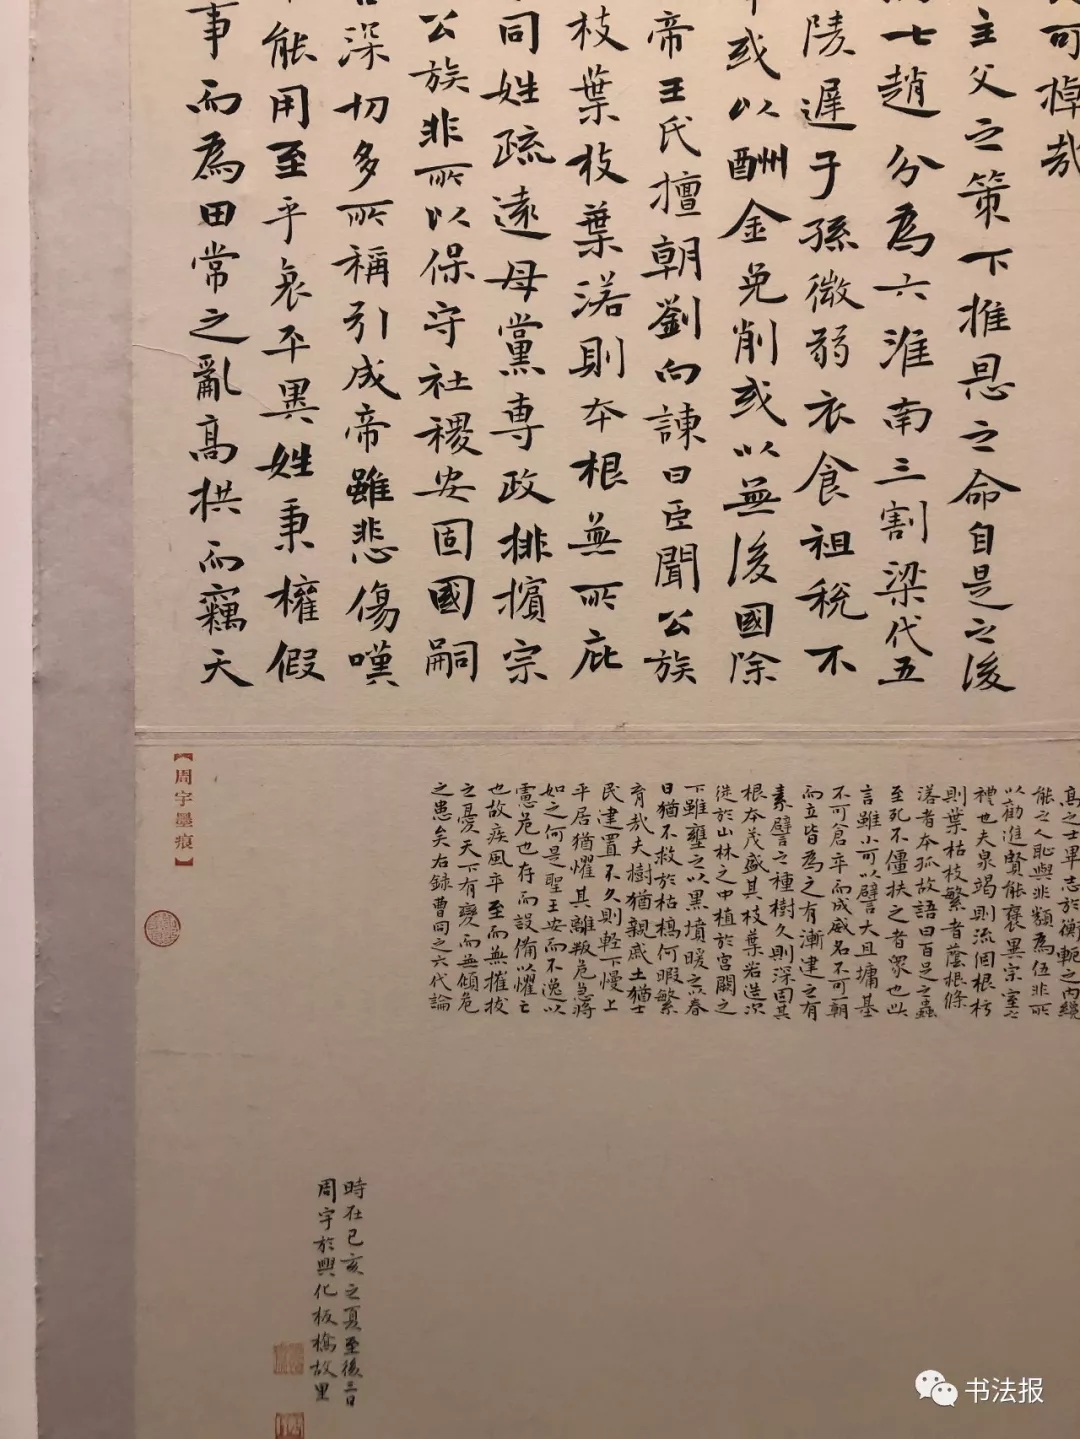 可悼哉
主父之策下推恩之命自是之後
七趙分為六淮南三割梁代五
陵遲子孫微弱衣食祖稅不
或以酬金免削或以無後國除
帝王氏擅朝劉向諫曰臣聞公族
枝葉枝葉落則本根無所庇
同姓疏遠母黨專政排擯宗
公族非所以保守社稷安固國嗣
深切多所稱引成帝雖悲傷嘆
能用至乎哀平異姓秉權假
事而為田常之亂高拱而竊天
高之士畢志於衡軛之內纔
能之人恥與非類為伍非所
以勸進賢能褒異宗室之
禮也夫泉竭則流涸根朽
則葉枯枝繁者蔭根條
落者本孤故語曰百足之蟲
至死不僵扶之者眾也此
言雖小可以譬大且墉基
不可倉卒而成威名不可一朝
而立皆為之有漸建之有
素譬之種樹久則深固其
根本茂盛其枝葉若造次
徙於山林之中植於宮闕之
下雖壅之以黑墳暖之以春
日猶不救於枯槁何暇繁
育哉夫樹猶親戚土猶士
民建置不久則輕下慢上
平居猶懼其離叛危急將
如之何是聖王安而不逸以
慮危也存而設備以懼亡
也故疾風卒至而無摧拔
之憂天下有變而無傾危
之患矣右錄曹冏之六代論
【周宇墨痕】
時在己亥之夏至後三日
周宇於興化板橋故里
书法报